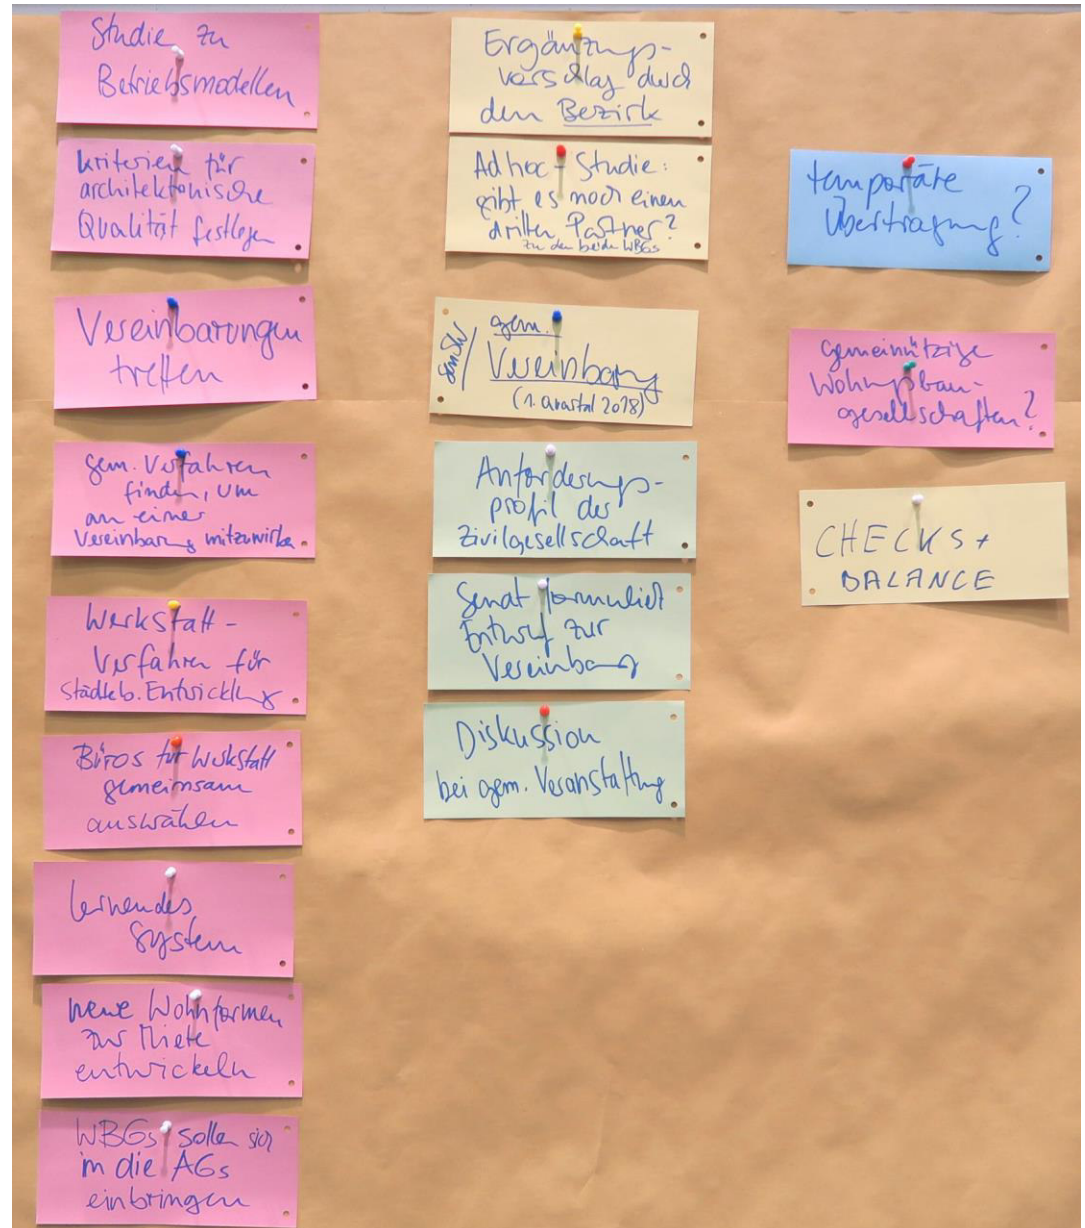 Studie zu
Betriebsmodellen
Kriterien für
architektonische
Qualität festlegen
Vereinbarungen
treffen
gem. Verfahren
finden, um
an einer
Vereinbarung mitzuwirken
Werkstatt-
verfahren für
städteb. Entwicklung
Büros für Werkstatt
gemeinsam
auswählen
lernendes
System
neue Wohnformen
zur Miete
entwickeln
WBGs sollen sich
in die AGs
einbringen
Ergänzungs-
vorschlag durch
den Bezirk
Ad hoc - Studie:
gibt es noch einen
dritten Partner?
zu den beiden WBGs
gem.
Vereinbarung
(1. Quartal 2018)
Anforderungs-
profil der
Zivilgesellschaft
Senat formuliert
Entwurf zur
Vereinbarung
Diskussion
bei gem. Veranstaltung
temporäre
Übertragung?
gemeinnützige
Wohnungsbau-
gesellschaften?
CHECKS +
BALANCE